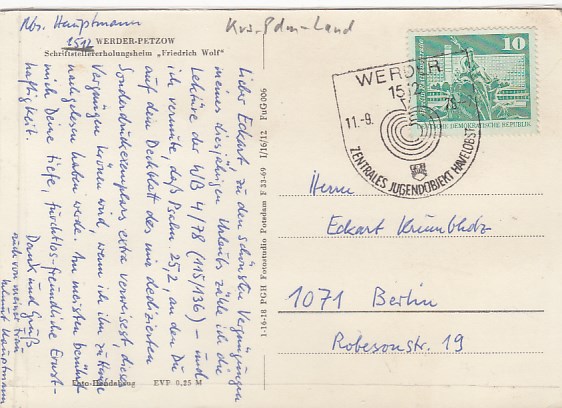 Abs. Hauptmann
1512
Krs. Pdm-Land
WERDER-PETZOW
Schriftstellererholungsheim „Friedrich Wolf"
Lieber Eckart, zu den schönsten Vergnügungen
meines diesjährigen Urlaubs zähle ich die
Lektüre der WB 4/78 (115/136) – und
ich vermute, daß Psalm. 25,2, an den Du
auf dem Deckblatt des mir dedizierten
Sonderdruckexemplars extra verweisest, dieses
Vergnügen krönen wird, wenn ich ihn zu Hause
nachgelesen haben werde. Am meisten berührt
mich Deine tiefe, furchtlos-freundliche Ernst-
haftigkeit.
Dank und Gruß
auch von meiner Frau
Helmut Hauptmann
Foto-Handabzug EVP 0,25 M
1-16-18 PGH Fotostudio Potsdam F 33-69 I/16/12 Fu G 006
WERDER
1512
11.-9. 78-
ZENTRALES JUGENDOBJEKT HAVELOBST
10
DEUTSCHE DEMOKRATISCHE REPUBLIK
Herrn
Eckart Krumbholz
1071 Berlin
Robesonstr. 19